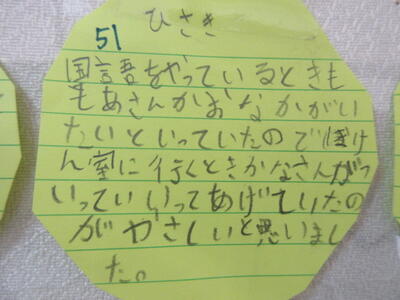 ひさき
51
国語をやっているときも
もあさんがおなかがい
たいといっていたのでほけ
ん室に行くときかなさんがつ
いっていいってあげていたの
がやさしいと思いまし
た。